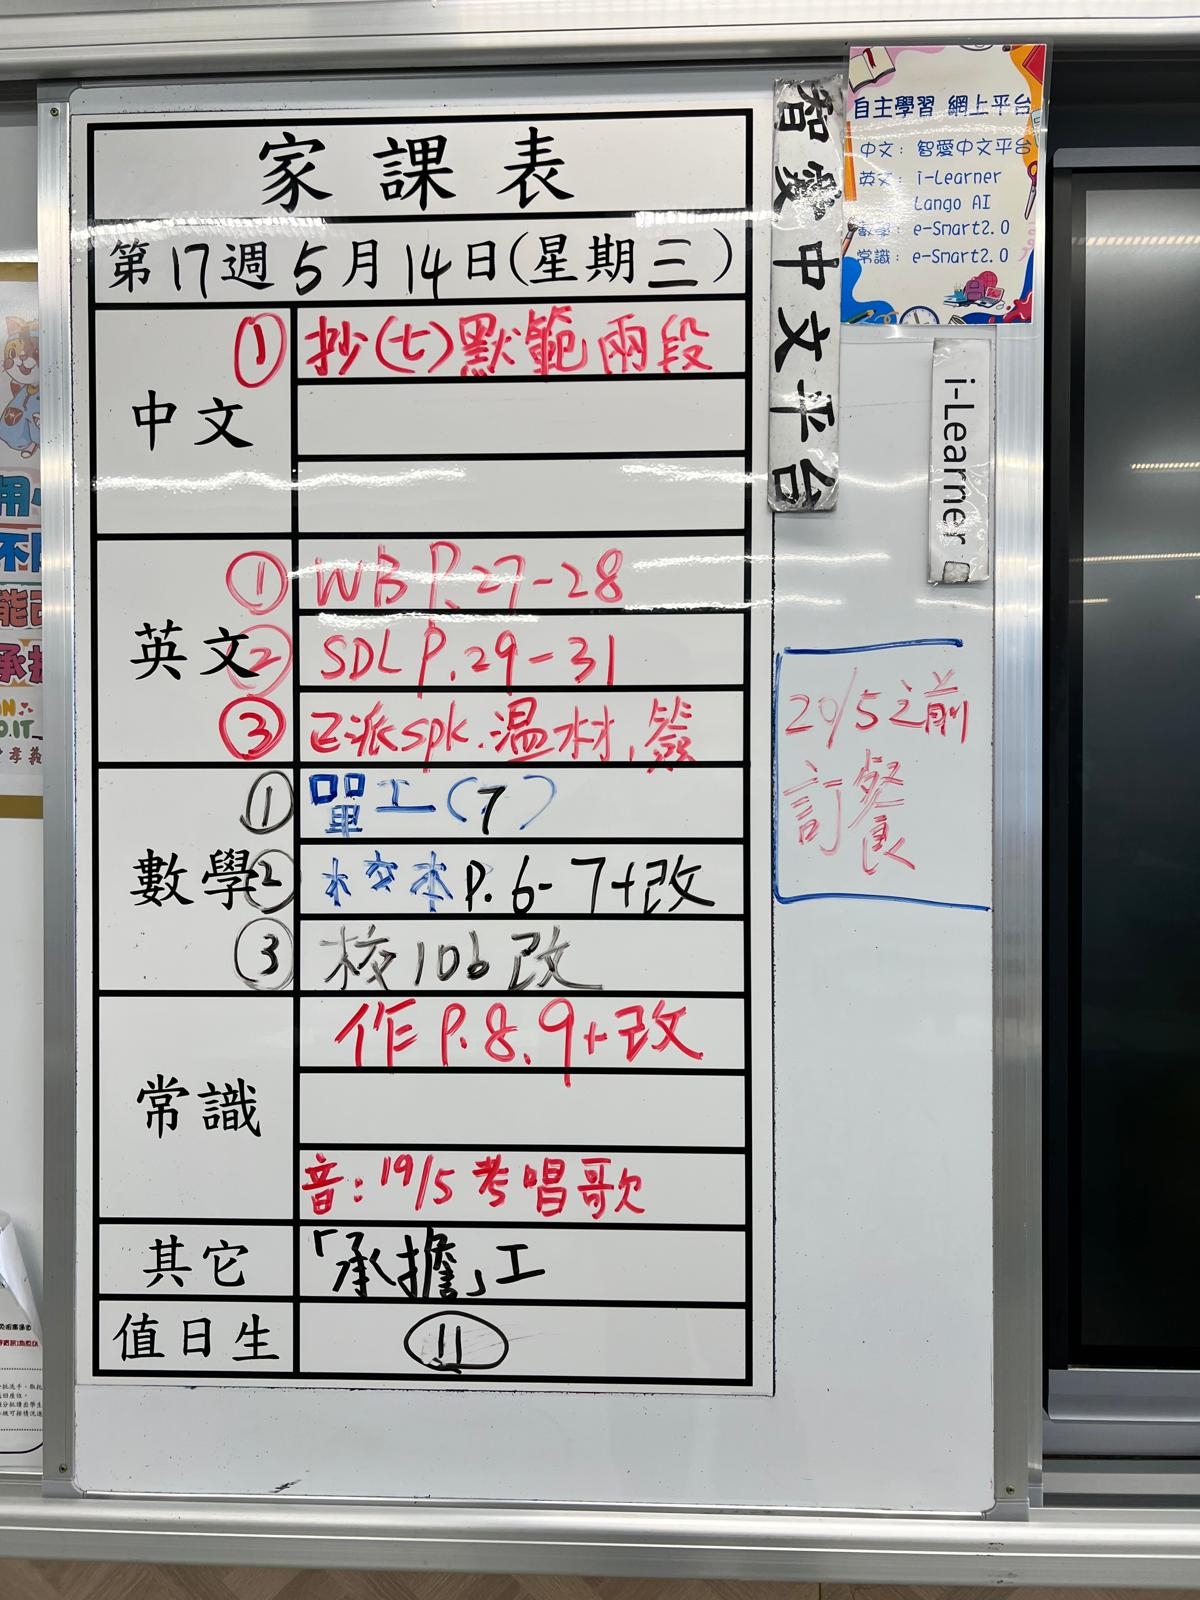 家課表
第17週5月14日(星期三)
中文
① 抄(七)默範兩段
英文
① WB P.27-28
② SDL P.29-31
③ 已派spk.溫材,簽
數學
① 單工(7)
② 校本P.6-7+改
③ 校10b改
常識
作P.8.9+改
音:19/5考唱歌
其它
「承擔」工
值日生
11
智愛中文平台
自主學習 網上平台
中文: 智愛中文平台
英文: i-Learner
Lango AI
數學: e-Smart2.0
常識: e-Smart2.0
i-Learner
20/5之前
訂餐